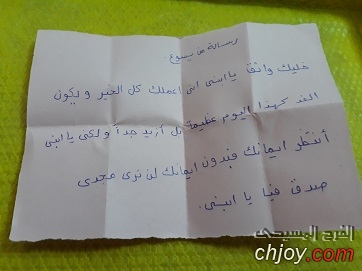 رسالة من يسوع
خليك واثق يا ابنى انى اعملك كل الخير و يكون
الغد كهذا اليوم عظيمة بل أزيد جداً و لكى يا ابنى
أنتظر ايمانك فبدون ايمانك لن ترى مجدى
صدق فيا يا ابنى.
الفرح المسيحى
chjoy.com